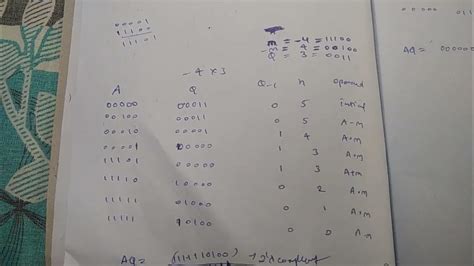 00001
11100
11101
m = -4 = 11100
-m = 4 = 00100
Q = 3 = 0011
00000 000
AQ = 00000
-4 x 3
A Q Q-1 n operand
00000 00011 0 5 initial
00100 00011 0 5 A-m
00010 00001 1 4
00001 00000 1 3 A+m
11101 00000 1 3 A+m
11110 10000 0 2 A.m
11111 01000 0 1 A.m
11111 10100 0 0 A.m
AQ = (1111110100) → 2's complement